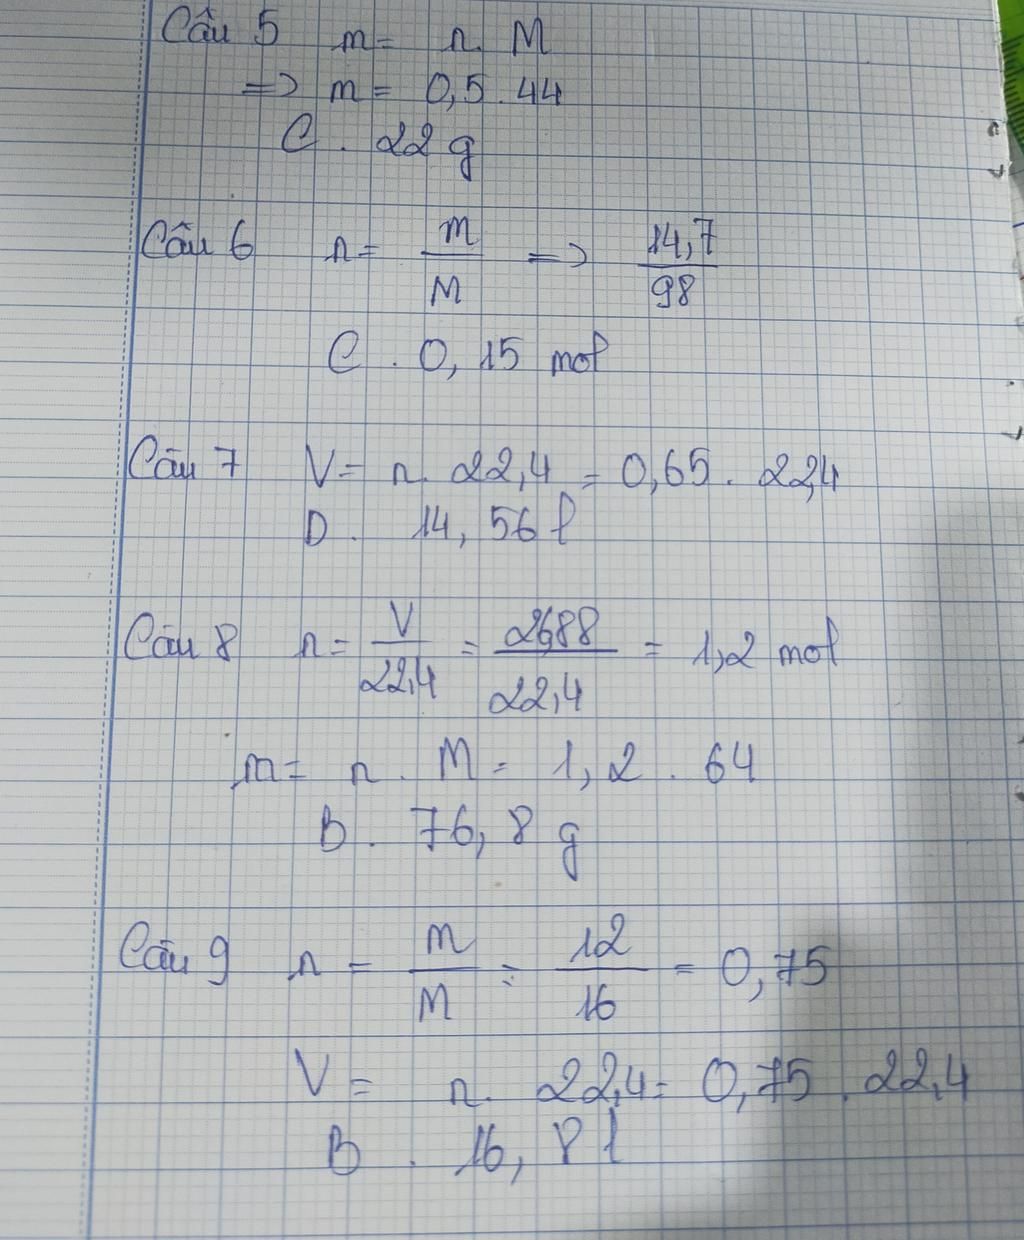 Câu 5 m = n. M
=> m = 0,5 . 44
C . 22 g
Câu 6 n = m/M => 14,7/98
C . 0, 15 mol
Câu 7 V = n. 22,4 = 0,65 . 22,4
D . 14, 56 l
Câu 8 n = V/22,4 = 26,88/22,4 = 1,2 mol
m = n . M = 1, 2 . 64
B . 76, 8 g
Câu 9 n = m/M = 12/16 = 0,75
V = n. 22,4 = 0,75 . 22,4
B . 16, 8 l